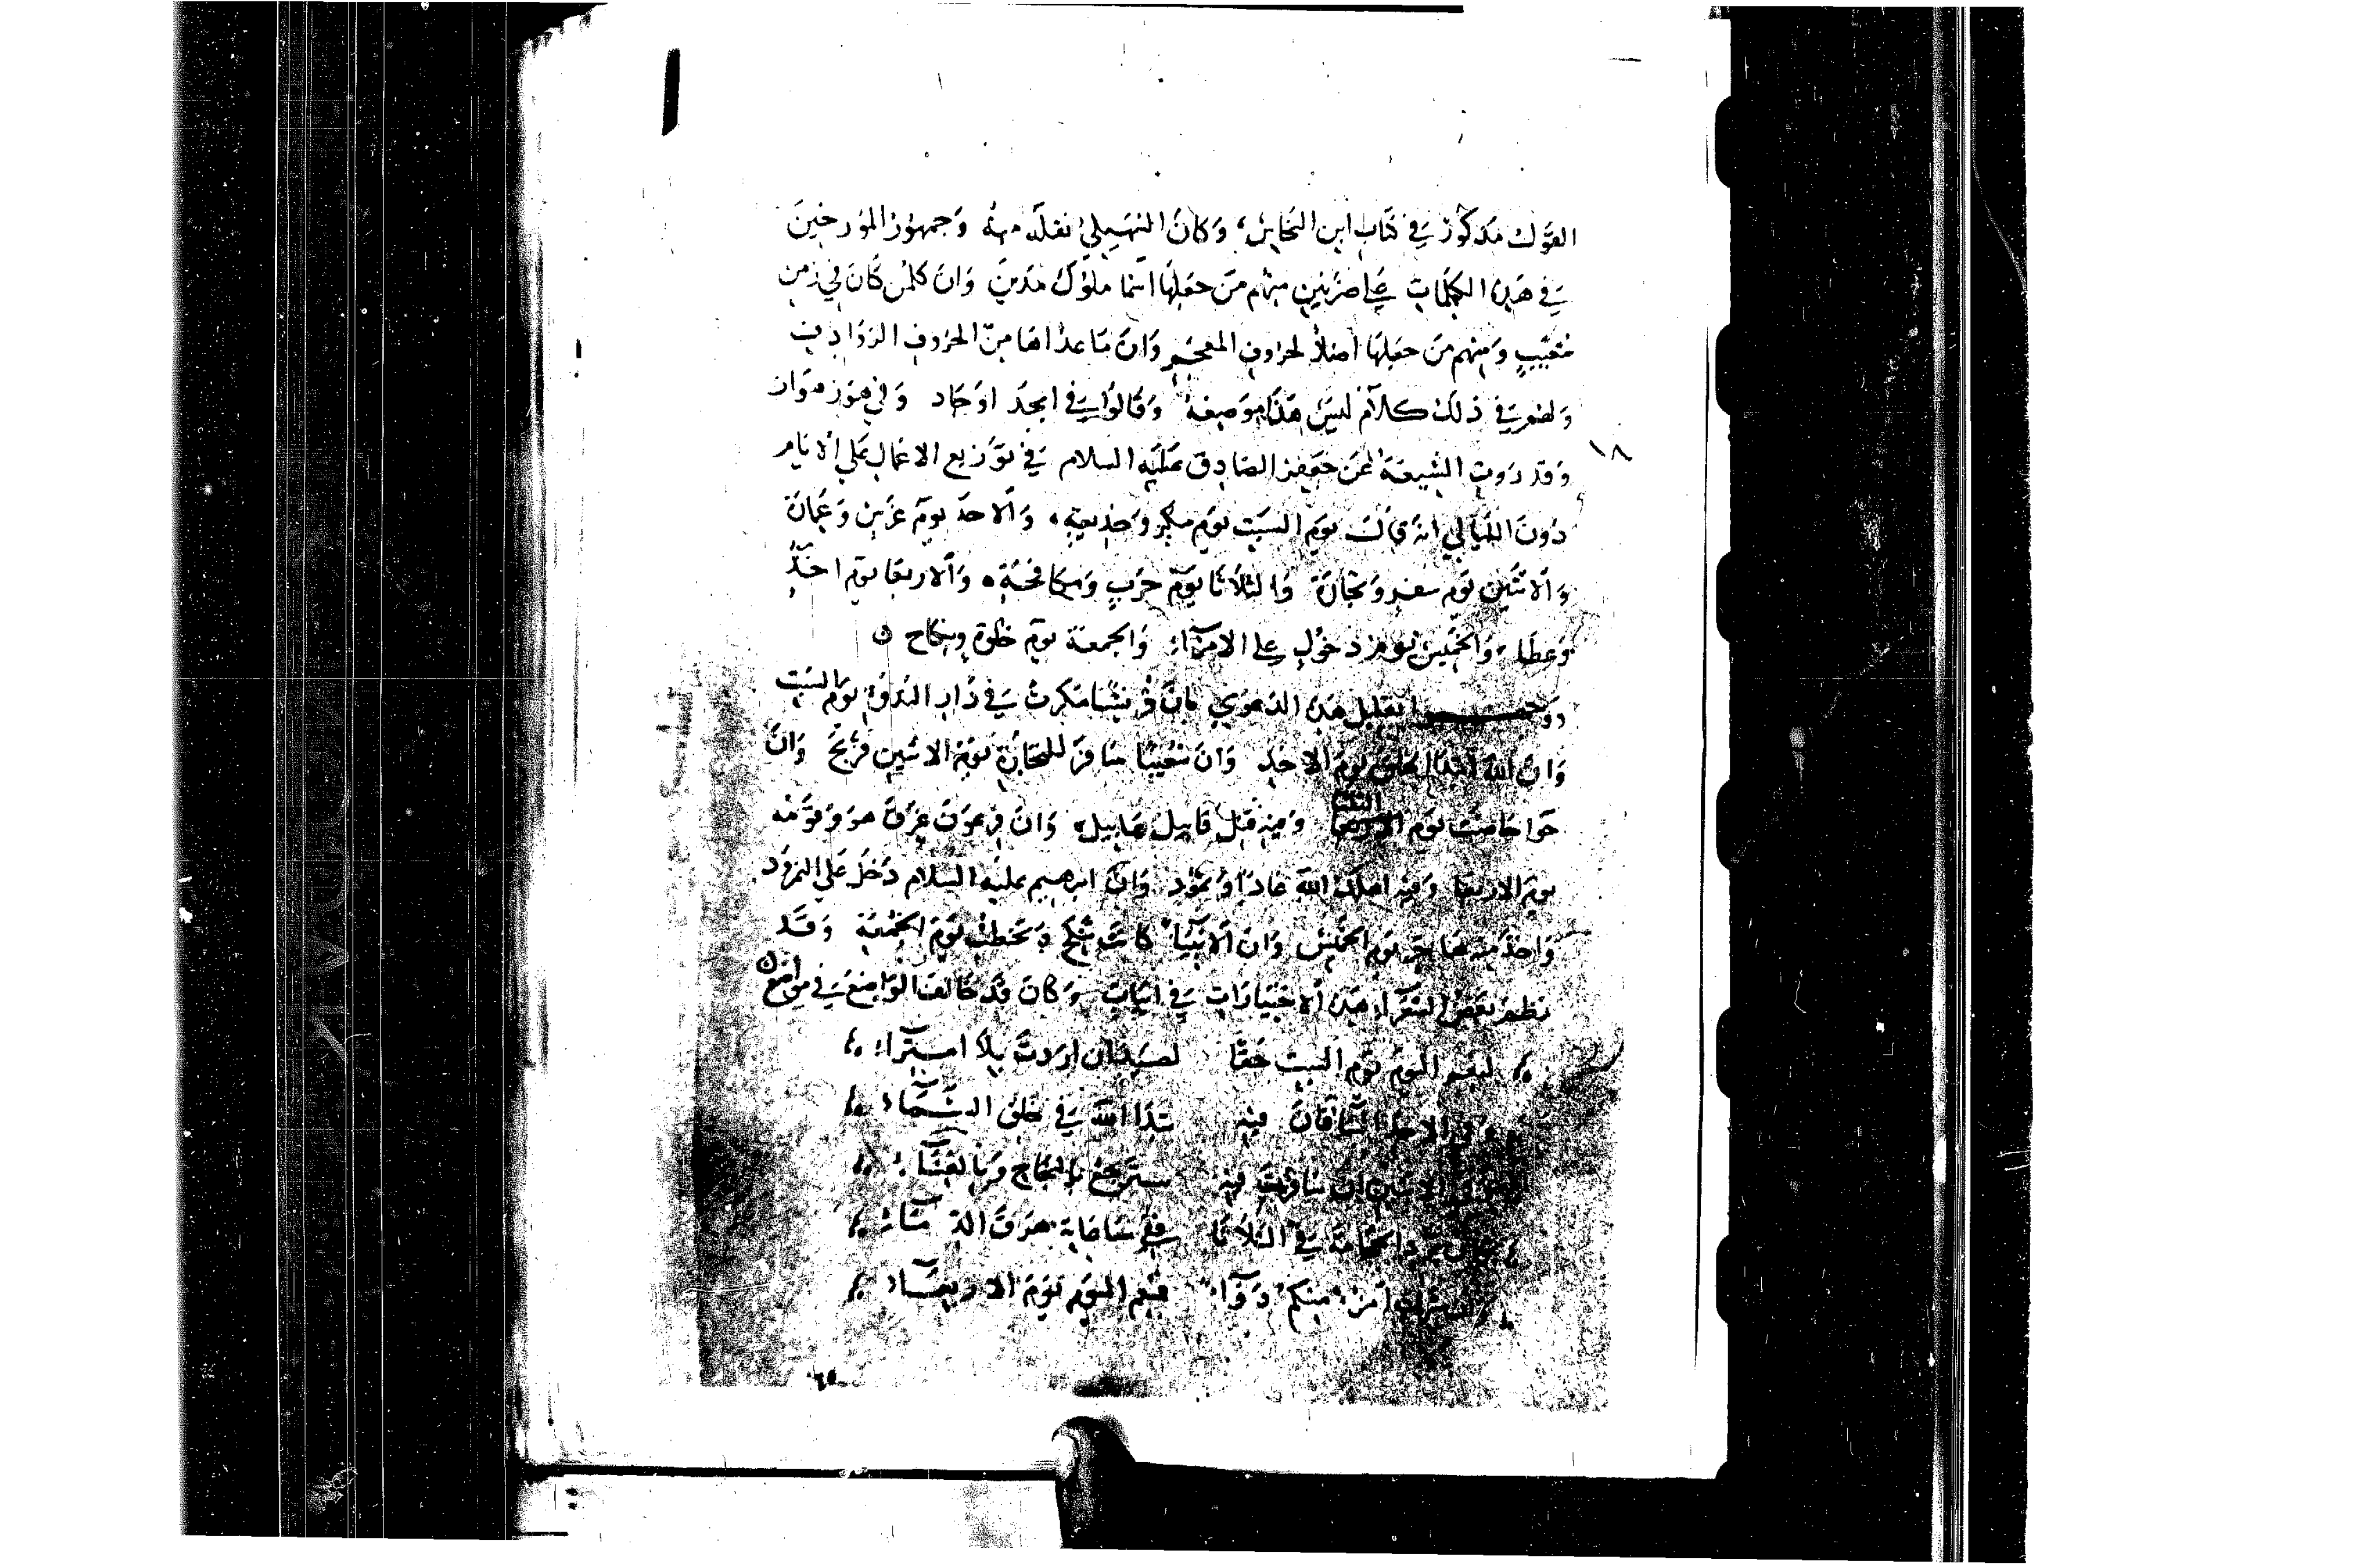 القول مذكور في كتاب ابن النحاس، وكان السهيلي نقله منه وجمهور المؤرخين
في هذه الكلمات على ضربين منهم من جعلها اسما ملوك مدين وان كلمن كان في زمن
شعيب ومنهم من جعلها اصلا لحروف المعجم وان ما عداها من الحروف الزوايد
ولهم في ذلك كلام ليس هذا موضعه وقالوا في ابجد اوحاد وفي هوز هواز
١٨
وقد روت الشيعة عن جعفر الصادق عليه السلام في توزيع الاعمال على الايام
دون الليالي انه قال يوم السبت يوم مكر وخديعة، والاحد يوم غرس وعمارة
والاثنين يوم سفر وتجارة والثلاثا يوم حرب ومكافحة، والاربعا يوم اخذ
وعطا، والخميس يوم دخول على الامراء، والجمعة يوم خلوة ونكاح
تعليل هذه الدعوى بان قريشا مكرت في دار الندوة يوم السبت
وان الله ابتدا الخلق يوم الاحد وان شعيبا سافر للتجارة يوم الاثنين فربح وان
حوا حاضت يوم الثلثا وفيه قتل قابيل هابيل، وان فرعون غرق هو وقومه
يوم الاربعا وفيه اهلك الله عادا وثمود وان ابرهيم عليه السلام دخل على النمرود
واخذ منه هاجر يوم الخميس وان الانبيا كانت تنكح وتخطب يوم الجمعة وقد
نظم بعض الشعراء هذه الاختيارات في ابيات وكان قد خالف الواضع في مواضع
لنعم اليوم يوم السبت حقا لصيد ان اردت بلا امتراء
وفي الاحد فيه بدا الله في خلق السماء
وفي الاثنين ان سافرت فيه سترجع بالنجاح وبالغناء
الحجامة في الثلاثا ففي ساعاته هرق الدماء
امرء منكم دواء فنعم اليوم يوم الاربعاء